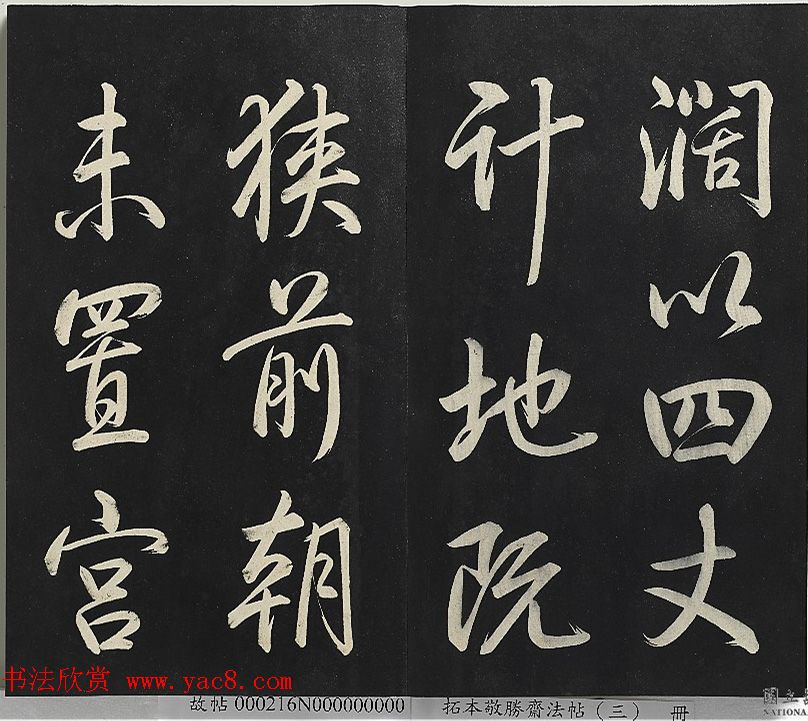 濶以四丈
计地阮
狹前朝
未置宫
书法欣赏 www.yac8.com
故帖 000216N000000000
拓本敬勝齋法帖（三） 冊
國立
NATIONA